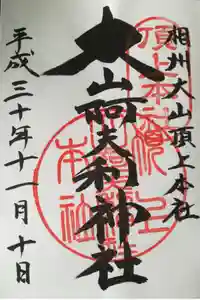 相州大山頂上本社
大山阿夫利神社
平成三十年十一月十日
頂上本社